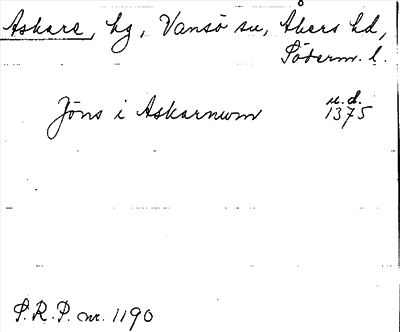 Askare, hg, Vansö sn, Åkers hd,
Söderm. l.
Jöns i Askarnum u.d.
1375
S.R.P. nr. 1190